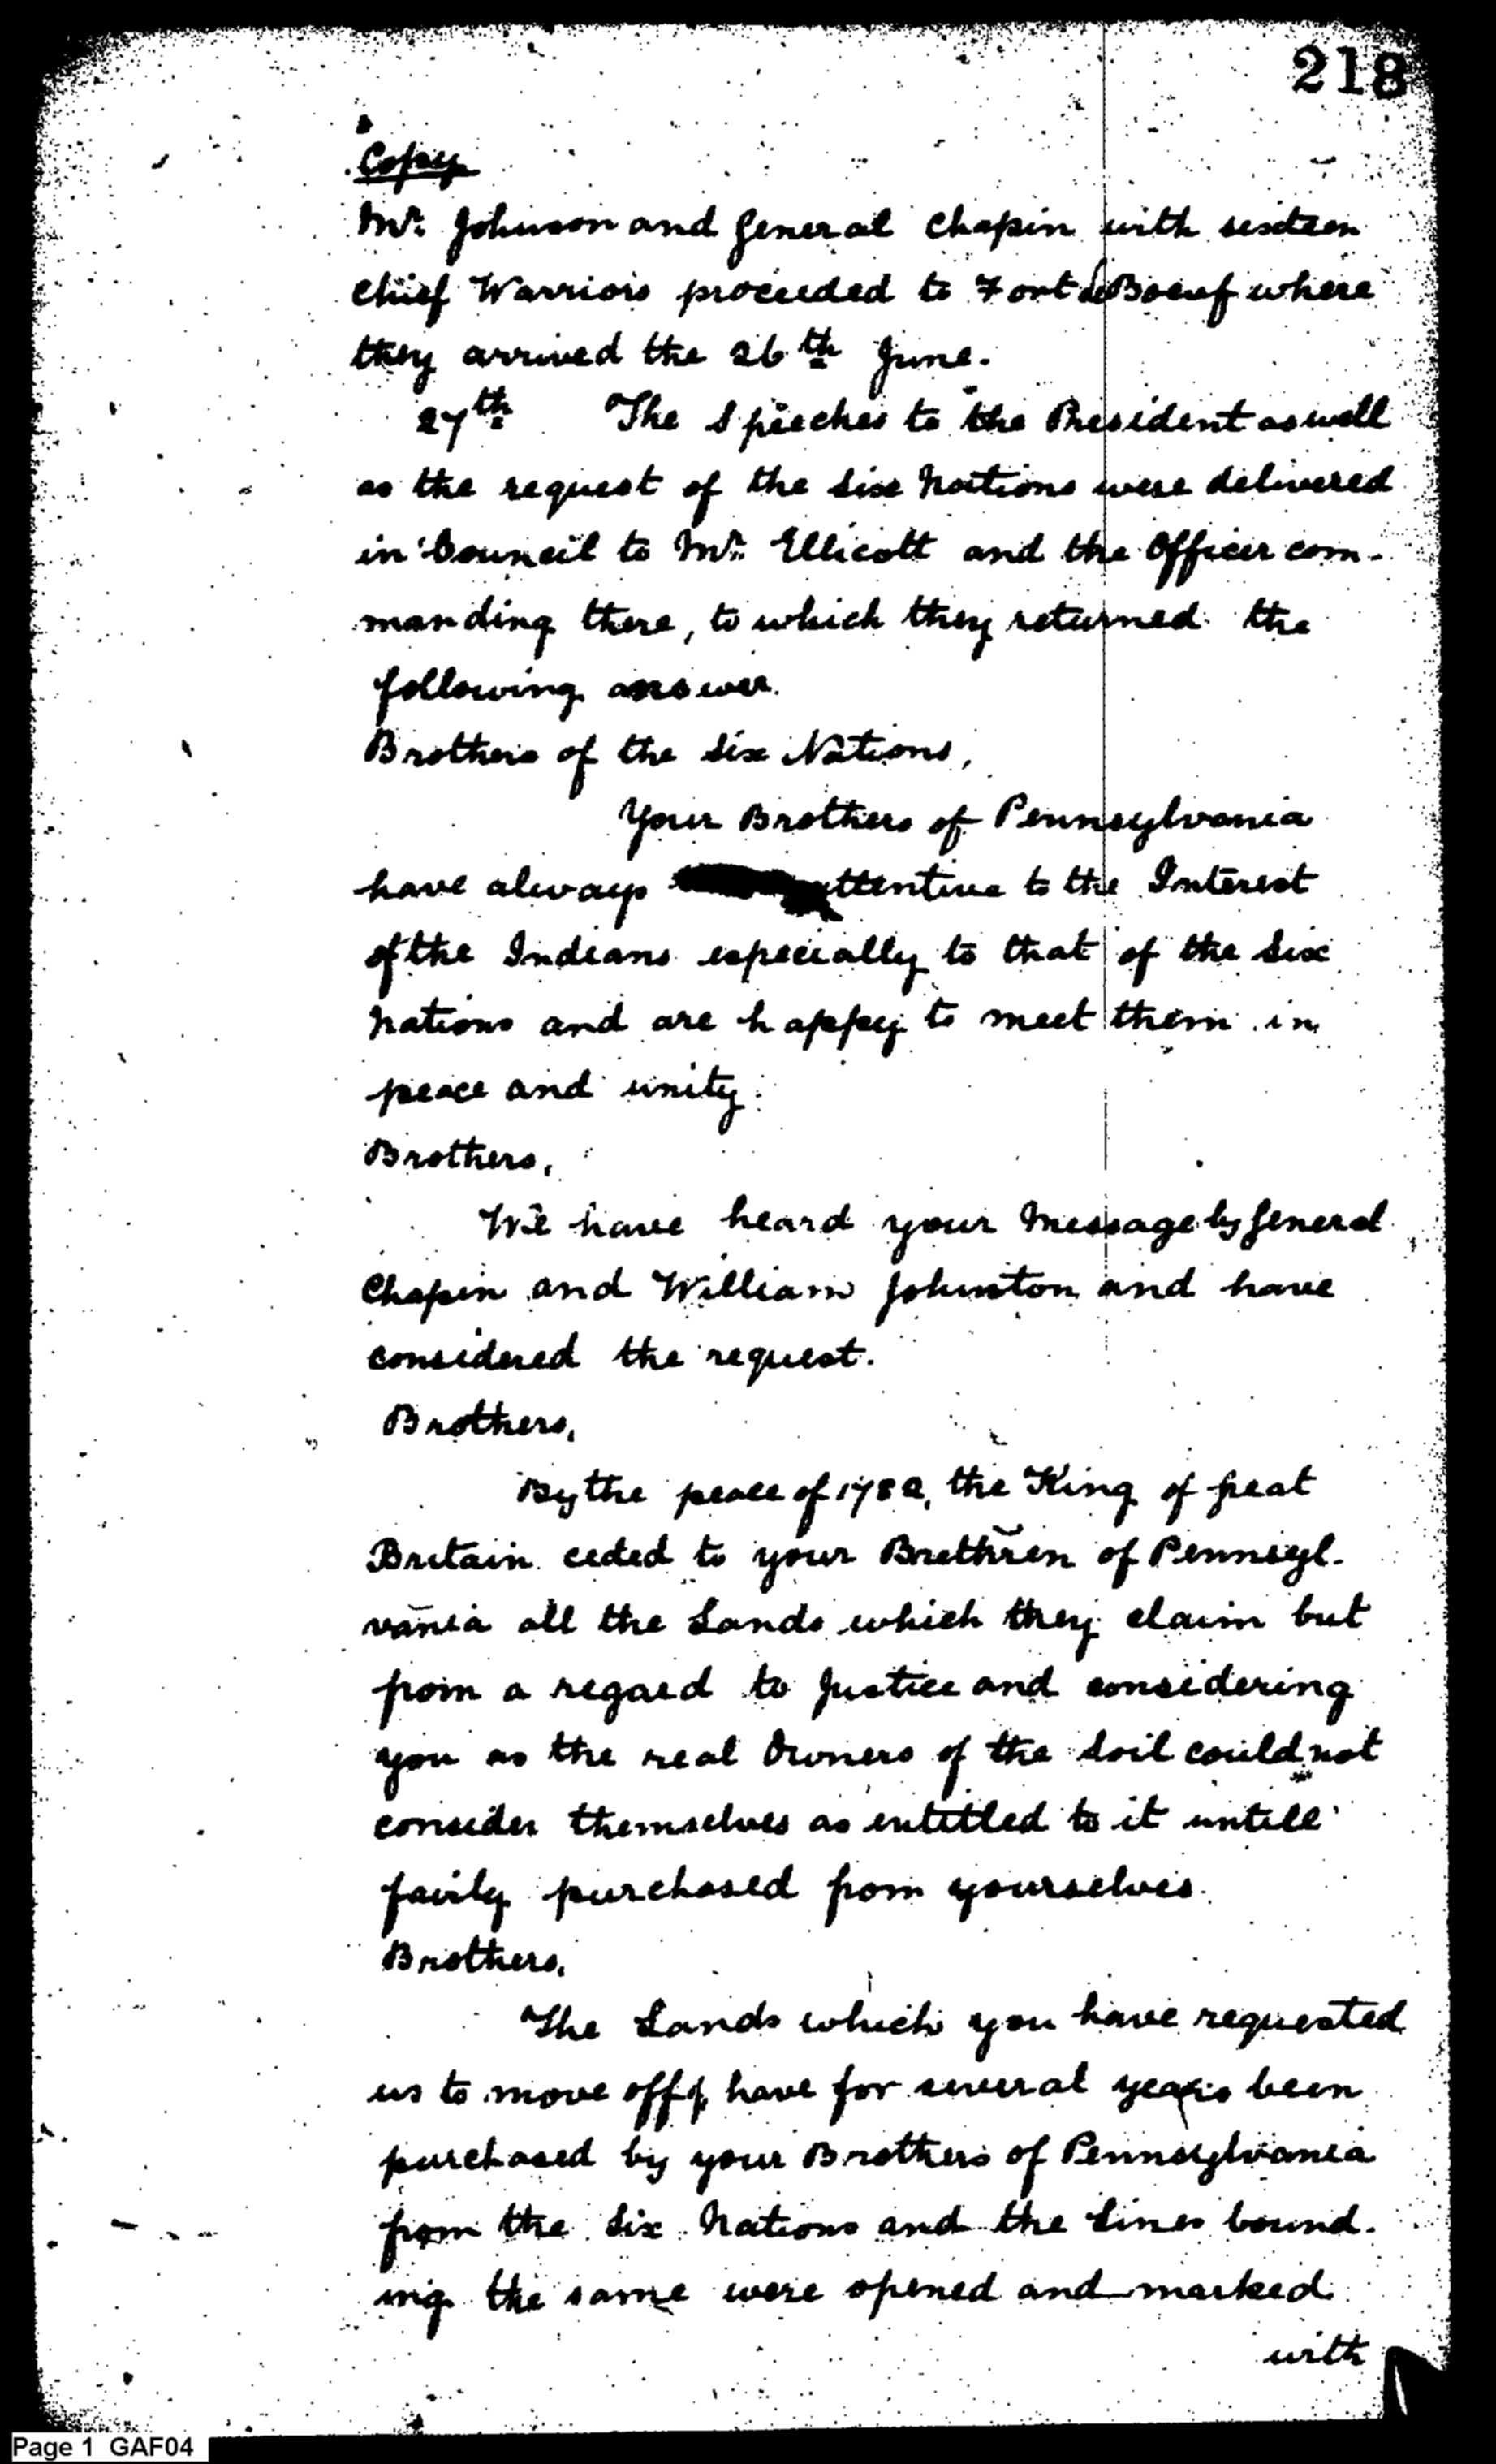 218
Copy
Mr. Johnson and General Chapin with sixteen
Chief Warriors proceeded to Fort de Boeuf where
they arrived the 26th June.
27th The Speeches to the President as well
as the request of the Six Nations were delivered
in Council to Mr. Ellicott and the Officer com-
manding there, to which they returned the
following answer.
Brothers of the Six Nations,
Your Brothers of Pennsylvania
have always attentive to the Interest
of the Indians especially to that of the Six
Nations and are happy to meet them in
peace and unity.
Brothers,
We have heard your Message by General
Chapin and William Johnston and have
considered the request.
Brothers,
By the peace of 1782, the King of Great
Britain ceded to your Brethren of Pennsyl-
vania all the Lands which they claim but
from a regard to Justice and considering
you as the real Owners of the Soil could not
consider themselves as entitled to it untill
fairly purchased from yourselves.
Brothers,
The Lands which you have requested
us to move off, have for several years been
purchased by your Brothers of Pennsylvania
from the Six Nations and the Lines bound-
ing the same were opened and marked
with
Page 1 GAF04